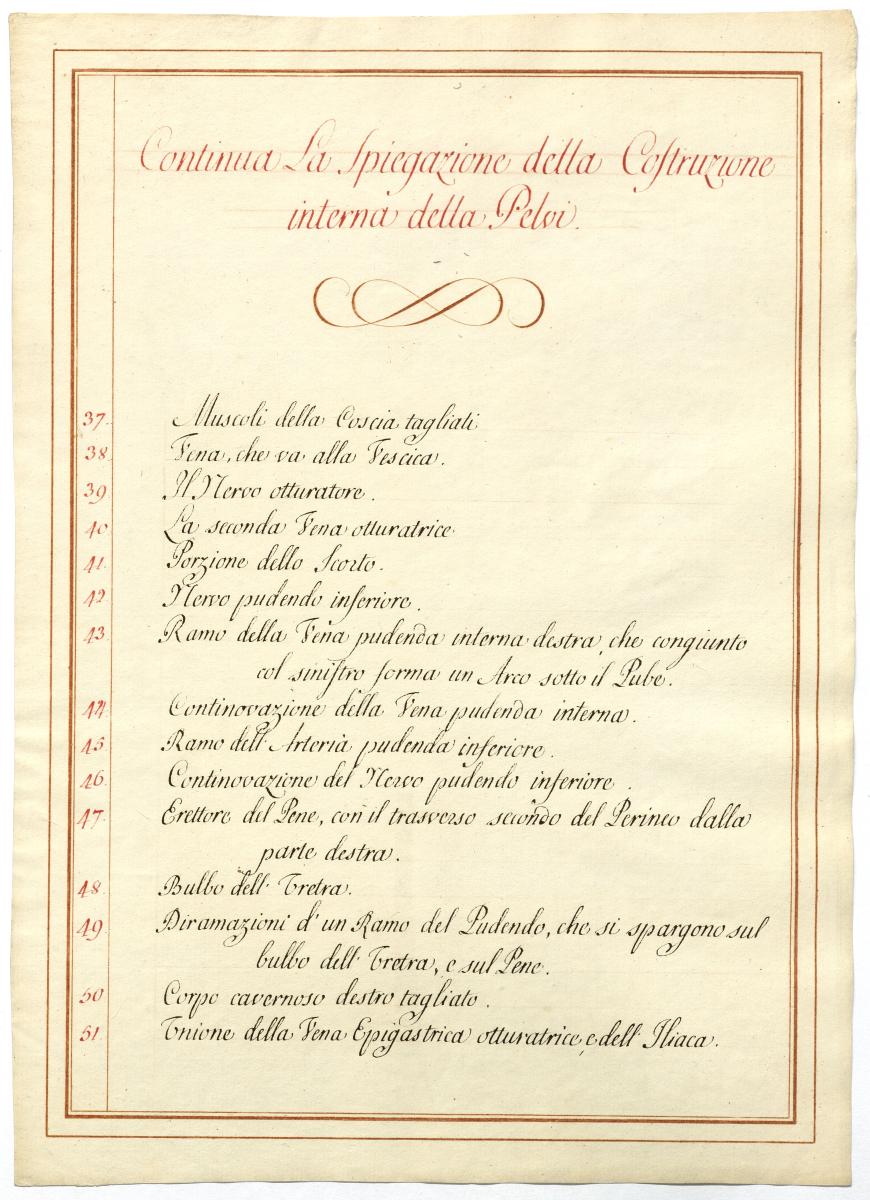 Continua La Spiegazione della Coſtruzione
interna della Pelvi.
37. Muscoli della Coscia tagliati
38. Vena, che va alla Vescica.
39. Il Nervo otturatore.
40. La seconda Vena otturatrice
41. Porzione dello Scorto.
42. Nervo pudendo inferiore.
43. Ramo della Vena pudenda interna destra, che congiunto
col siniſtro forma un Arco sotto il Pube.
44. Continovazione della Vena pudenda interna.
45. Ramo dell' Arteria pudenda inferiore.
46. Continovazione del Nervo pudendo inferiore.
47. Erettore del Pene, con il trasverso secondo del Perineo dalla
parte destra.
48. Bulbo dell' Uretra.
49. Diramazioni d' un Ramo del Pudendo, che si spargono sul
bulbo dell' Uretra, e sul Pene.
50. Corpo cavernoso destro tagliato.
51. Unione della Vena Epigastrica otturatrice, e dell' Iliaca.